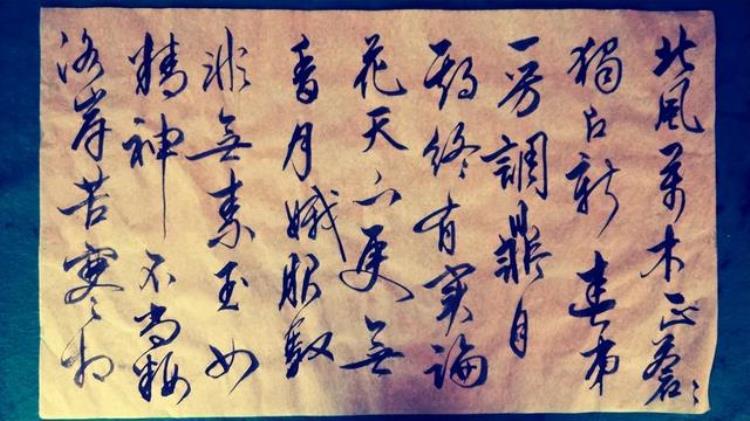 北風萬木正蒼〻
獨占新春第
一芳調鼎自
期終有實論
花天下更無
香月娥服馭
非無素玉女
精神不尚粧
洛岸苦寒相